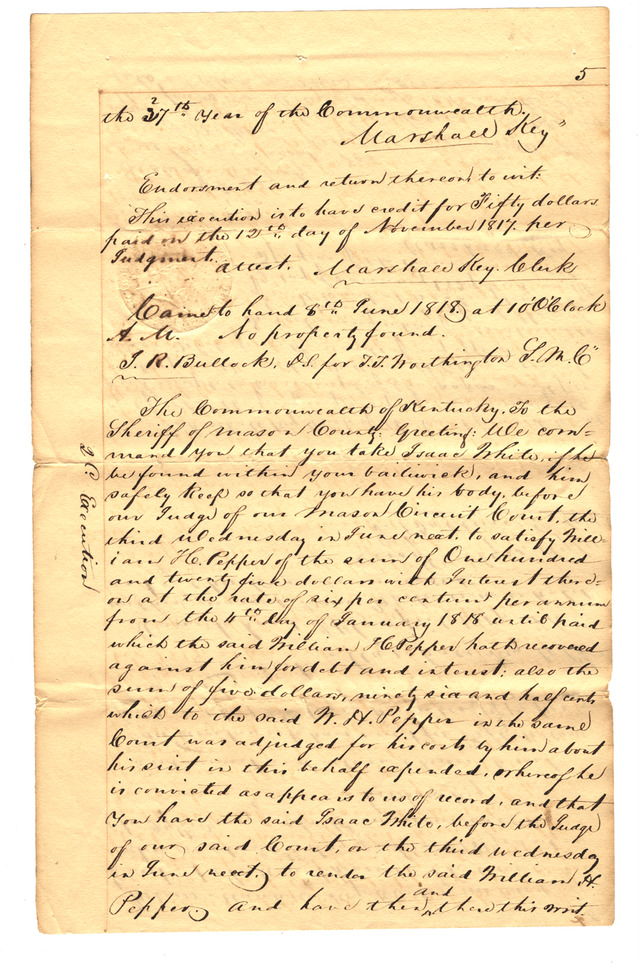 5
the 27th. Year of the Commonwealth.
Marshall Key"
Endorsment and return thereon, to wit:
This execution is to have credit for Fifty dollars
paid on the 12th. day of November 1817. per
Judgment.
attest. Marshall Key. Clerk
Came to hand 8th June 1818. at 10 O'Clock
A. M. No property found.
J. R. Bullock, D.S. for T.T. Worthington S. M. C"
The Commonwealth of Kentucky, To the
Sheriff of Mason County; Greeting: We com-
mand you that you take Isaac White, if he
be found within your bailiwick, and him
safely keep so that you have his body, before
our Judge of our Mason Circuit Court, the
third Wednesday in June next, to satisfy Will-
iam H. Pepper of the sum of One hundred
and twenty five dollars with Interest there-
on at the rate of six per centum per annum
from the 4th day of January 1818 until paid
which the said William H Pepper hath recovered
against him for debt and interest; also the
sum of five dollars, ninety six and half cents
which to the said W. H. Pepper in the same
Court was adjudged for his costs by him about
his suit in this behalf expended, whereof he
is convicted as appears to us of record, and that
you have the said Isaac White, before the Judge
of our said Court, on the third Wednesday
in June next. to render the said William H.
Pepper. and have then and there this writ.
2 C. Execution